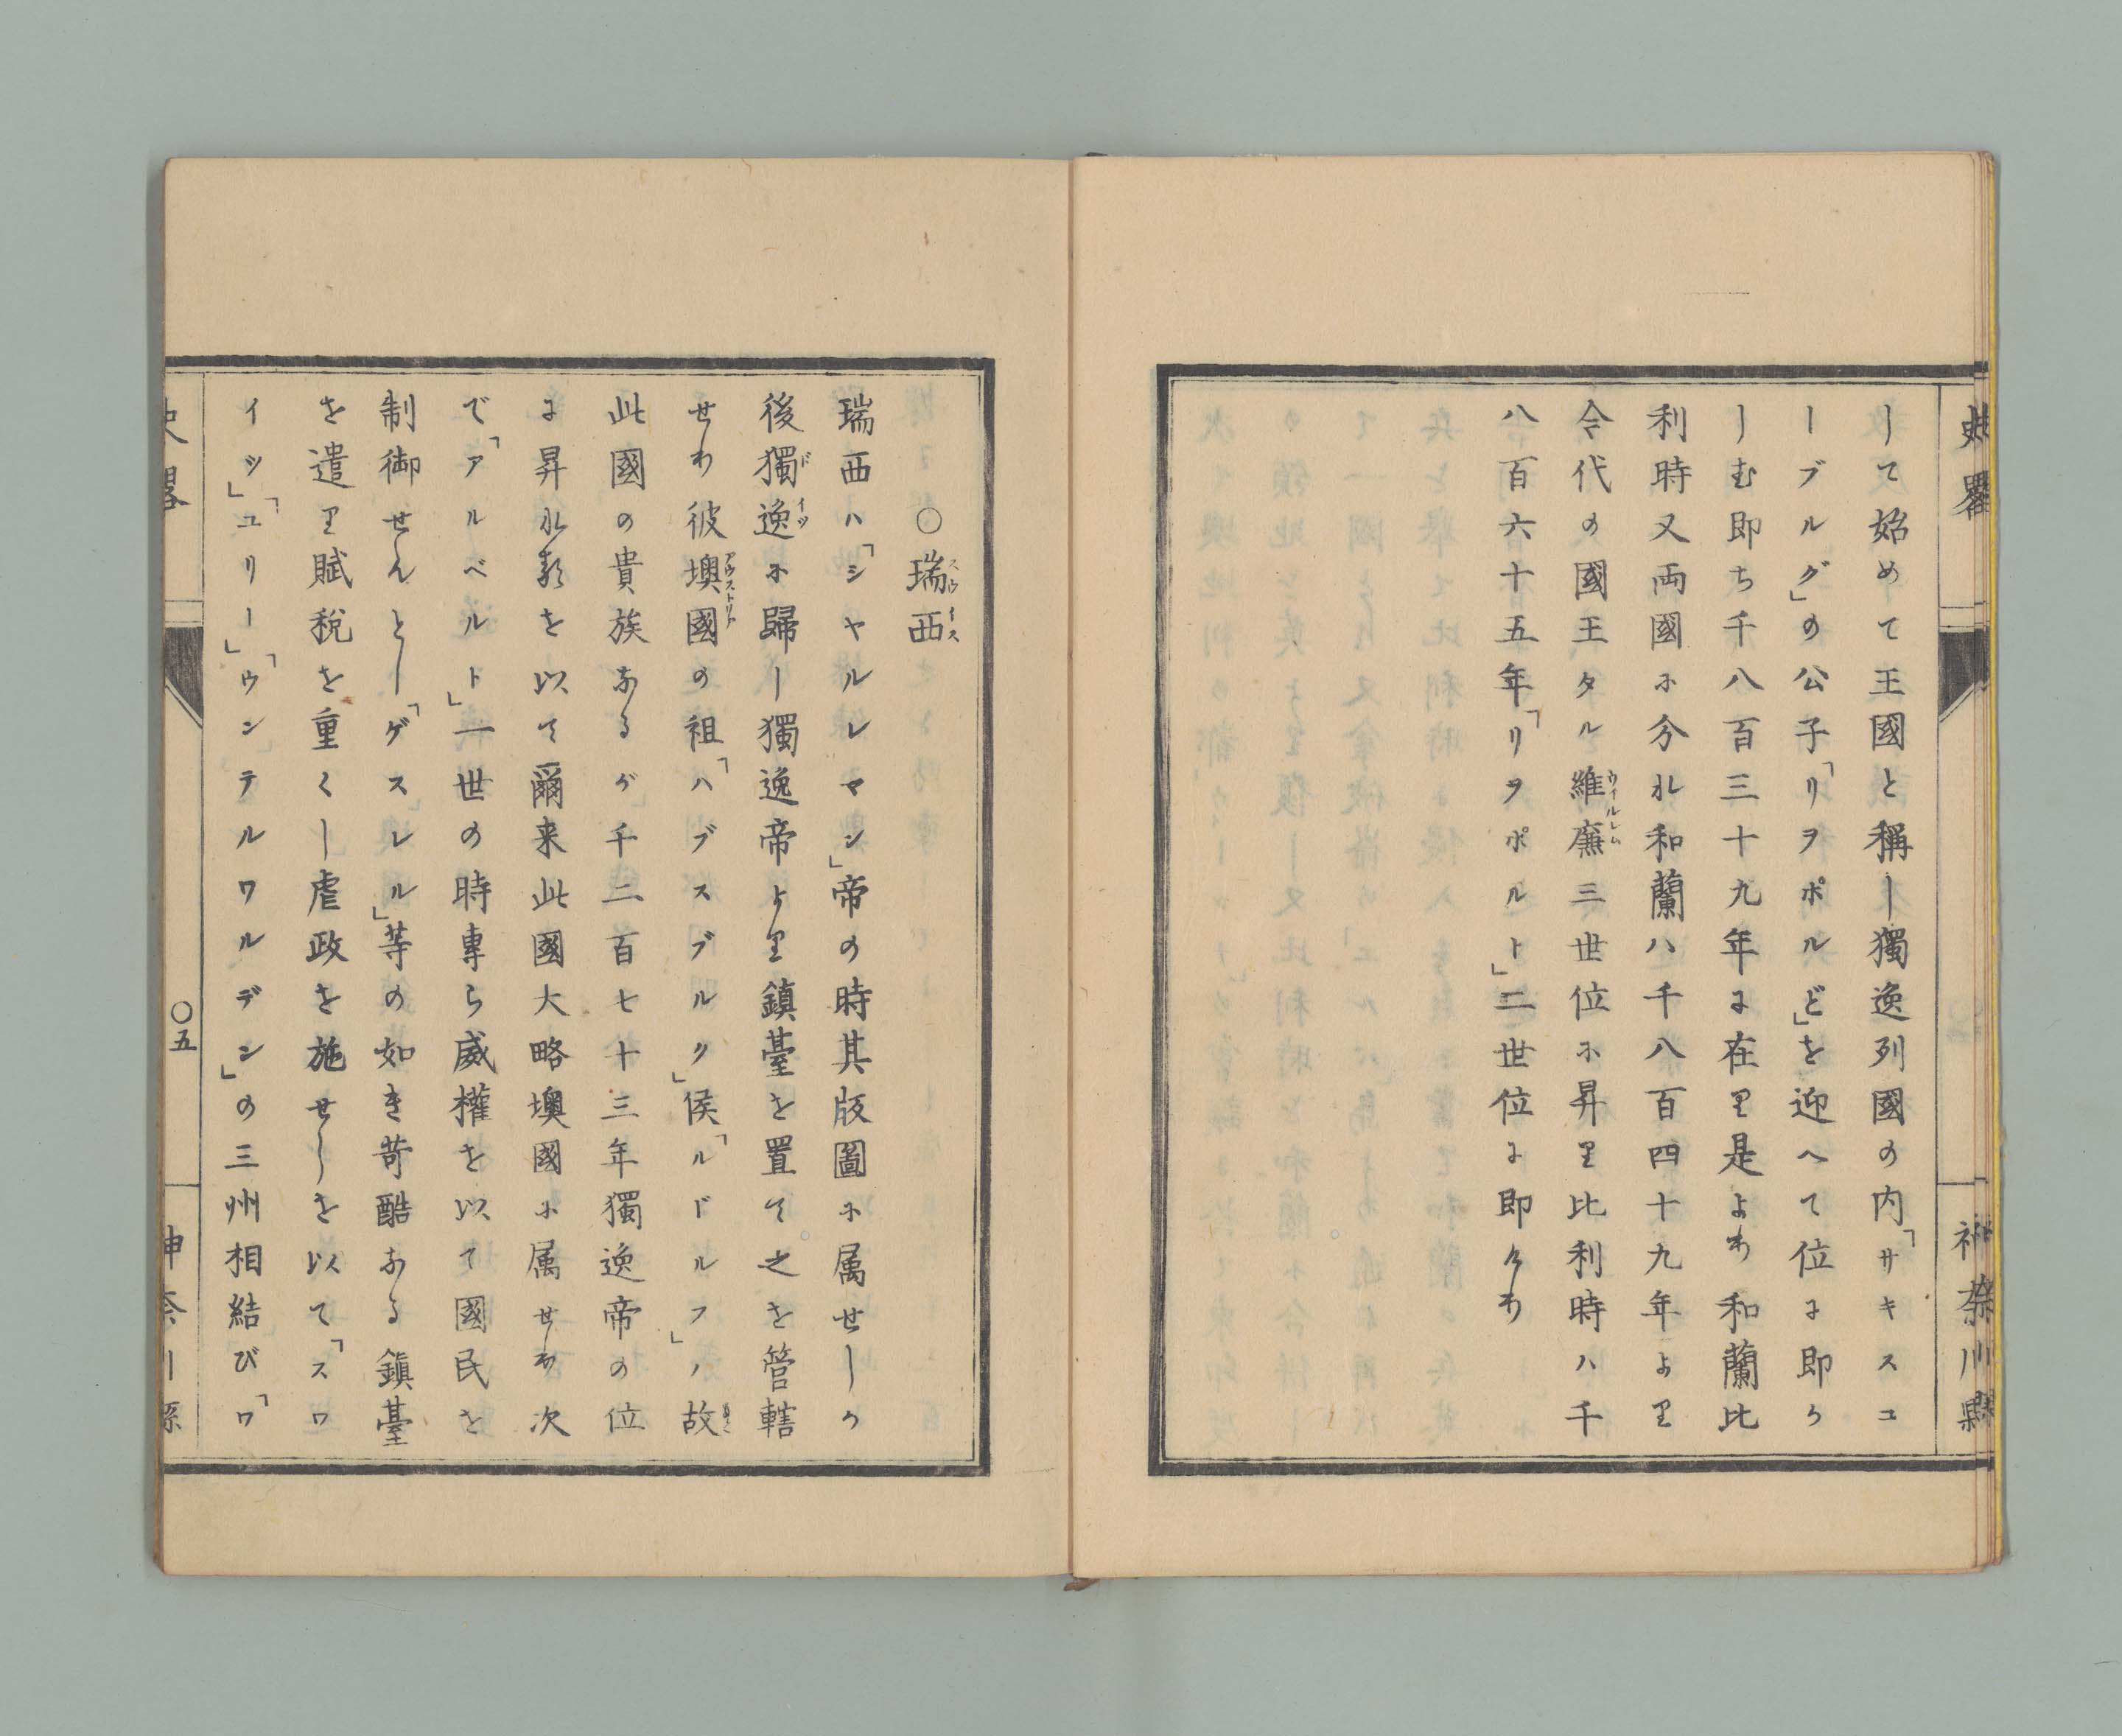 史畧
神奈川縣
して始めて王國と稱し獨逸列國の内「サキスコ
ーブルグ」の公子「リヲポルど」を迎へて位に即か
しむ即ち千八百三十九年に在り是より和蘭比
利時又両國に分れ和蘭ハ千八百四十九年より
今代の國王タル維廉三世位に昇り比利時ハ千
ウイルレム
八百六十五年「リヲポルト」二世位に即けり
〇瑞西
スウイス
瑞西ハ「シヤルレマン」帝の時其版圖に属せしか
後獨逸に歸し獨逸帝より鎮臺を置て之を管轄
ドイツ
せり彼墺國の祖「ハブスブルク」侯「ルドルフ」ハ故
アウストリト
此國の貴族なるが千二百七十三年獨逸帝の位
に昇れ
を以て爾来此國大略墺國に属せり次
で「アルベルト」一世の時専ら威權を以て國民を
制御せんとし「ゲスレル」等の如き苛酷なる鎮臺
を遣り賦税を重くし虐政を施せしを以て「スワ
イツ」「ユリー」「ウンテルワルデン」の三州相結び「ワ
史畧
〇五
神奈川縣